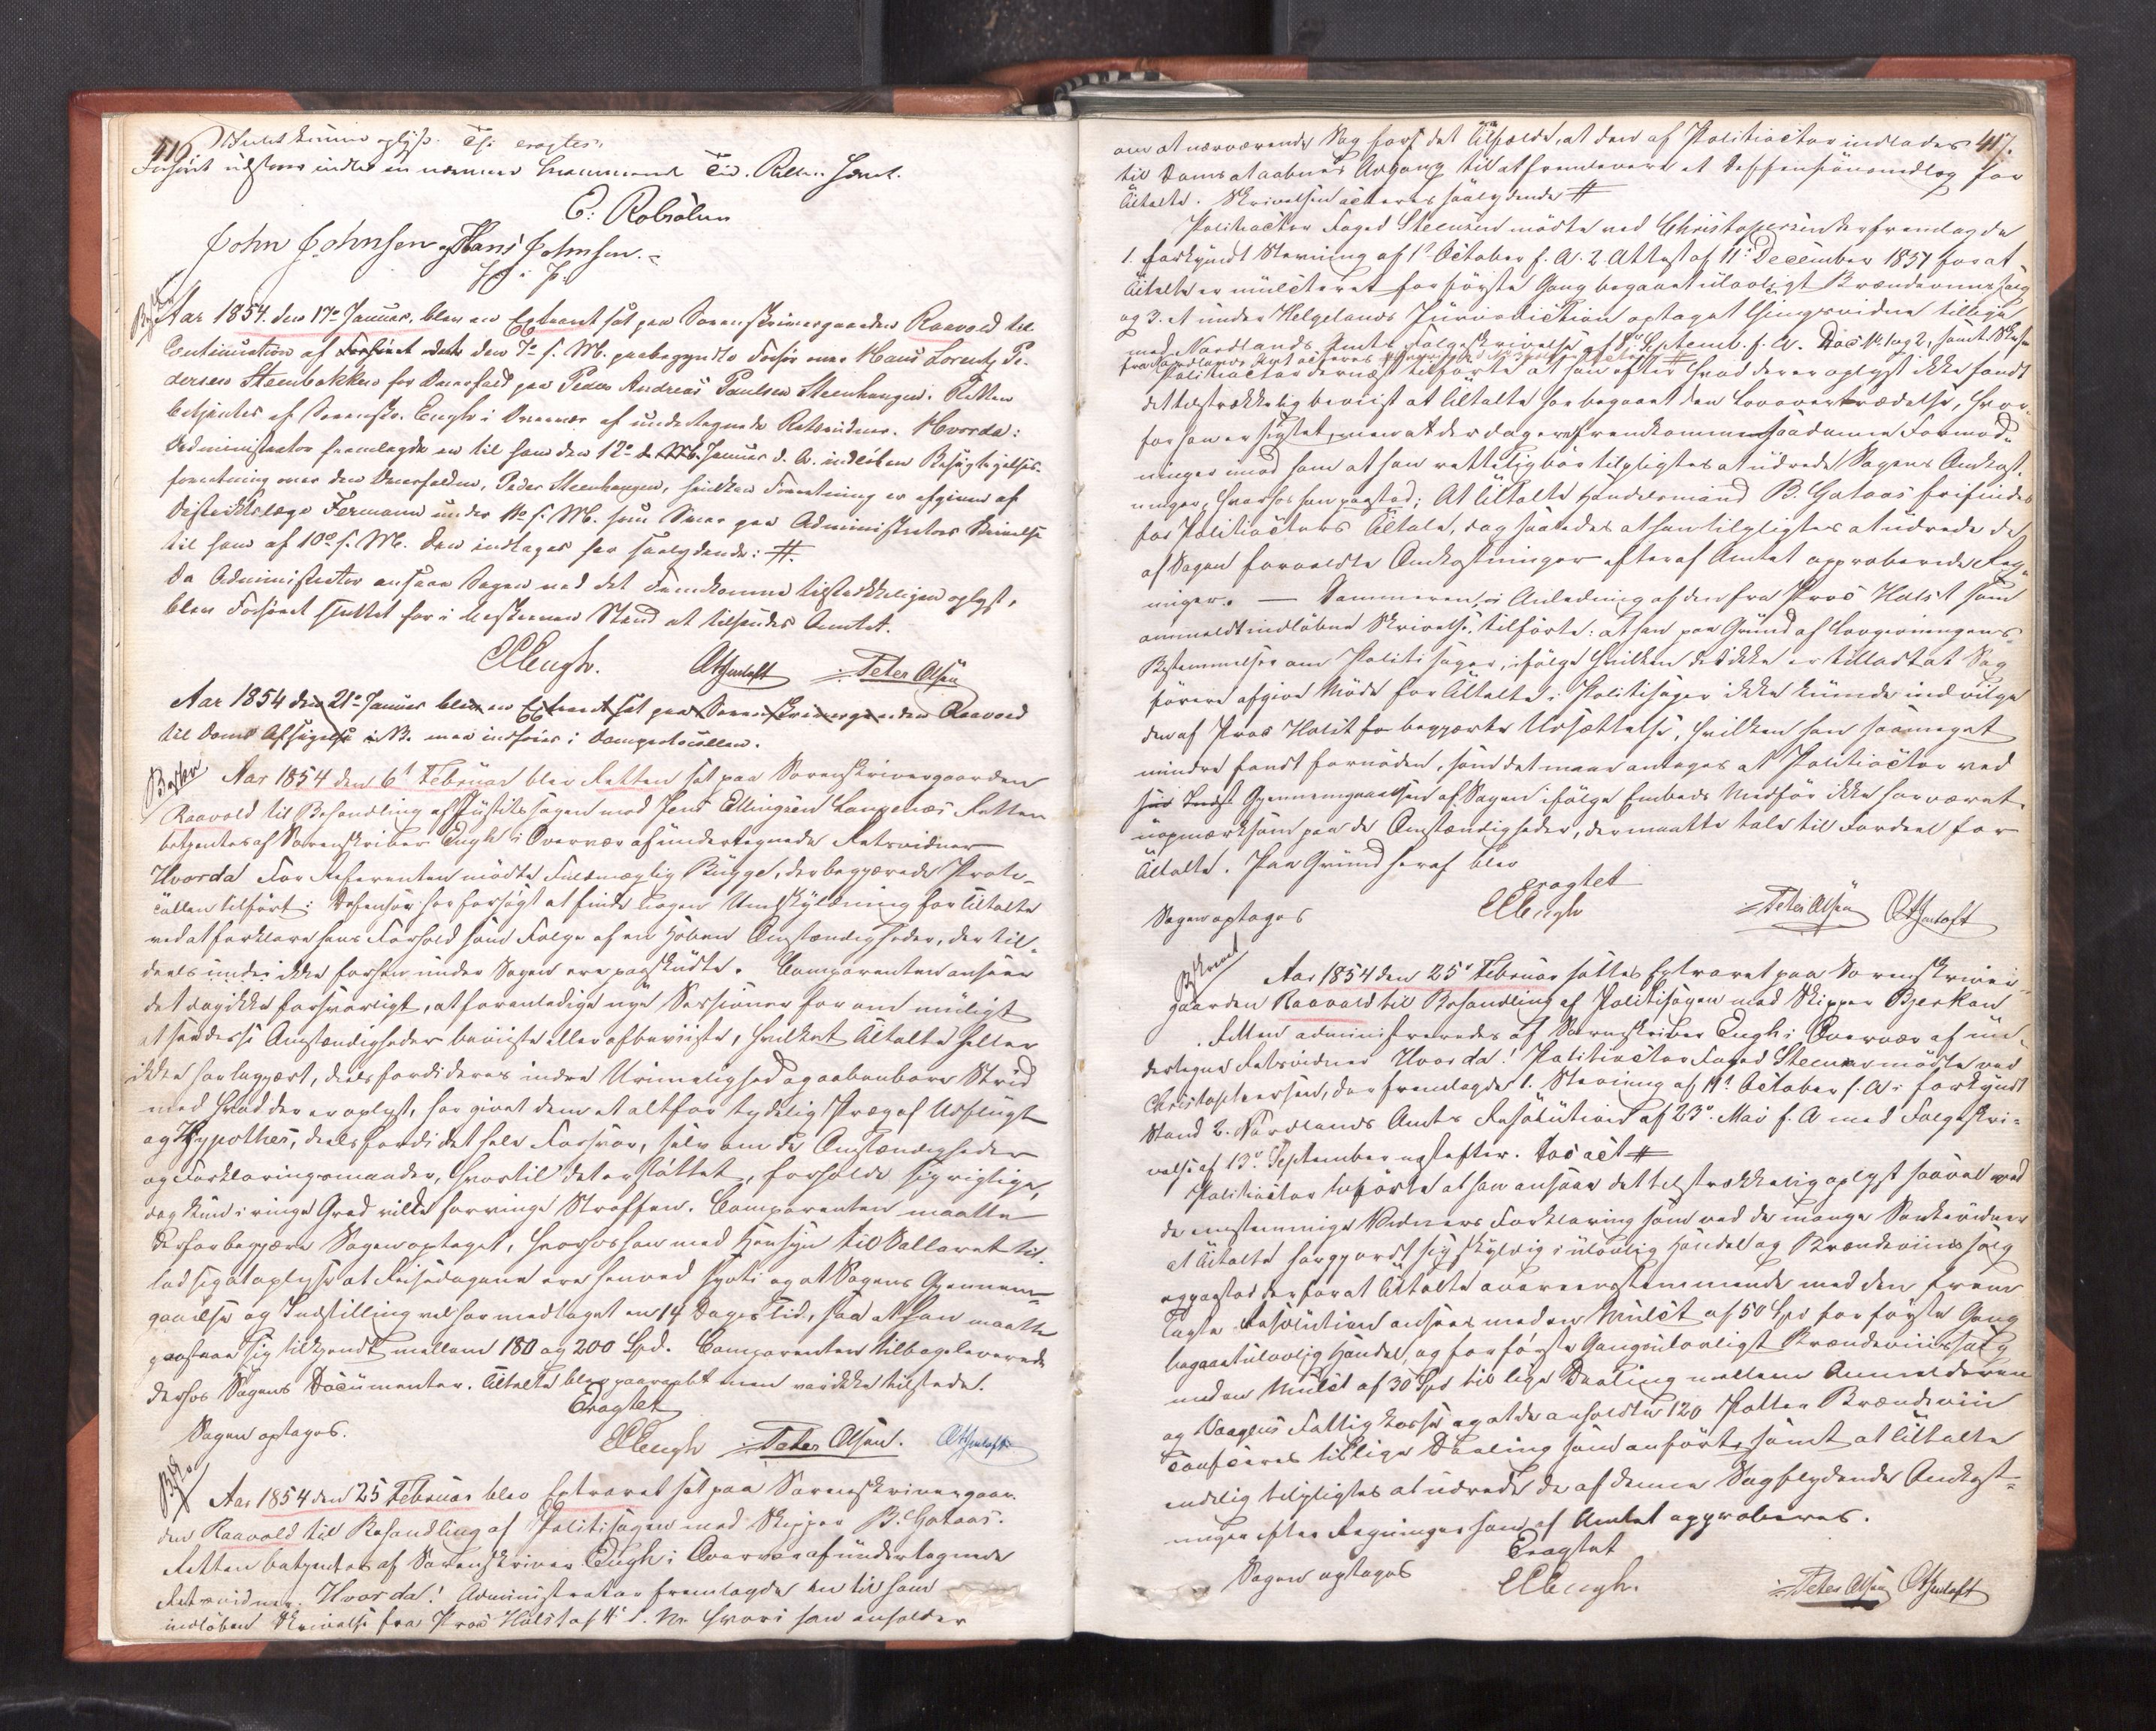 416
videre kunne oplyse. Thi eragtes:
Forhöret udstaaer indtil en nærmere kommende Tid. Retten hævet.
E: Robsahm
John Johnsen og Hans Johnsen.
Aar 1854. den 17de Januar, blev en Extraret sat paa Sorenskrivergaarden Raavold til
Continuation af Forhöret den 7de s. M. paabegyndte Forhör over Hans Lorentz Pe-
dersen Stembakken for Overfald paa Peder Andreas Paulsen Steenhaugen. Retten
betjentes af Sorenskr. Eugh i Overvær af undertegnede Retsvidner. Hvorda:
Administrator fremlagde en til ham den 12de Januar d. A. indlöben Besigtigelses-
forretning over den Overfaldne, Peder Steenhaugen, hvilken Forretning er afgiven af
Distriktslæge Fermann under 11te s. M. som Svar paa Administrators Skrivelse
til ham af 10de s. M. Den indtages her saalydende: #.
Da Administrator ansaae Sagen ved det Fremkomne tilstrækkeligen oplyst,
blev Forhöret sluttet for i beskreven Stand at tilsendes Amtet.
EEugh. Peter Olsen
Aar 1854 den 21de Januar blev en Extraret sat paa Sorenskrivergaarden Raavold
til Doms Afsigelse i B. men indföres i Domsprotocollen.
Aar 1854 den 6te Februar blev Retten sat paa Sorenskrivergaarden
Raavold til Behandling af Justitssagen mod Jens Ellingsen Langenæs. Retten
betjentes af Sorenskriver Eugh i Overvær af undertegnede Retsvidner
Hvorda For Referenten mödte Fuldmægtig Rügge, der begjærede Proto-
collen tilfört: Defensor har forsögt at finde nogen Undskyldning for Tiltalte
ved at forklare hans Forhold som Fölge af en Hoben Omstændigheder, der til-
deels under ikke forhen under Sagen ere paaskudte. Comparenten anseer
det dog ikke forsvarligt, at foranledige nye Sessioner for om muligt
at see disse Omstændigheder beviiste eller afbeviiste, hvilket Tiltalte heller
ikke har begjært, deels fordi deres indre Urimelighed og aabenbare Strid
med hvad der er oplyst, har givet dem et altfor tydelig Præg af Udflugt
og Hypothes, deels fordi det hele Forsvar, selv om de Omstændigheder
og Forklaringsmaader, hvortil det er stöttet, forholde sig rigtige,
dog kun i ringe Grad ville forringe Straffen. Comparenten maatte
derfor begjære Sagen optaget, hvorhos han med Hensyn til Sallaret til-
lod sig at oplyse at Reisedagene ere henved syv og at Sagens Gjennem-
gaaelse og Indstilling vel har medtaget en 14 Dages Tid, saa at han maatte
paastaae sig tilkjendt mellem 180 og 200 Spd. Comparenten tilbageleverede
derhos Sagens Documenter. Tiltalte blev paaraabt men var ikke tilstede.
Eragtet
Sagen optages.
EEugh Peter Olsen.
Aar 1854 den 25 Februar blev Extraret sat paa Sorenskrivergaar-
den Raavold til Behandling af Politisagen mod Skipper B. Gataas.
Retten betjentes af Sorenskriver Eugh i Overvær af undertegnede
Retsvidner. Hvorda! Administrator fremlagde en til ham
indlöben Skrivelse fra Proc Holst af 4de d. M. hvori han anholder
417.
om at nærværende Sag for det Tilfælde, at den af Politiactor indlades
til Doms at aabnes Adgang til at fremlevere et Deffensionsindlæg for
Tiltalte. Skrivelsen acteres saalydende #
Politiactor Foged Steensen mödte ved Christophersen der fremlagde
1. forkyndt Stevning af 1ste October f. A. 2. Attest af 11te December 1851 for at
Tiltalte er mulcteret for förste Gang begaaet ulovligt Brændeviinssalg
og 3. et under Helgelands Jurisdiction optaget Thingsvidne tillige
med Nordlands Amts Fölgeskrivelse af Septemb. f. A. Doc No 1 og 2, samt Skr.
fra Nordlands Amt acteres
Politiactor dernæst tilförte at han efter hvad der er oplyst ikke fandt
det tilstrækkelig beviist at Tiltalte har begaaet den Lovovertrædelse, hvor-
for han er sigtet, men at der dog er fremkommen saadanne Formod-
ninger mod ham at han rettelig bör tilpligtes at udrede Sagens Omkost-
ninger, hvorfor han paastod: At Tiltalte Handelsmand B. Gataas frifindes
for Politiactors Tiltale, dog saaledes at han tilpligtes at udrede de
af Sagen forvoldte Omkostninger efter af Amtet approberede Reg-
ninger. — Dommeren, i Anledning af den fra Proc Holst som
anmeldt indlöbne Skrivelse, tilförte: at han paa Grund af Lovgivningens
Bestemmelser om Politisager, ifölge hvilken det ikke er tilladt at Sag-
förere afgive Möde for Tiltalte i Politisager ikke kunde indvilge
den af Proc Holst begjærte Udsættelse, hvilken han saameget
mindre fandt fornöden, som det maae antages at Politiactor ved
Gjennemgaaelsen af Sagen ifölge Embeds Medför ikke har været
uopmærksom paa de Omstændigheder, der maatte tale til Fordeel for
Tiltalte. Paa Grund heraf blev
eragtet
Sagen optages
EEugh Peter Olsen
Aar 1854 den 25de Februar sattes Extraret paa Sorenskriver-
gaarden Raavold til Behandling af Politisagen mod Skipper Bjerkan
Retten administreredes af Sorenskriver Eugh i Overvær af un-
dertegnede Retsvidner Hvorda! Politiactor Foged Steensen mödte ved
Christophersen, der fremlagde 1. Stevning af 11te October f. A. i forkyndt
Stand 2. Nordlands Amts Resolution af 23de Mai f. A med Fölgeskri-
velse af 13de September næstefter. Doc act #
Politiactor tilförte at han ansaae det tilstrækkelig oplyst saavel ved
de eenstemmige Vidners Forklaring som ved de mange
at Tiltalte har gjordt sig skyldig i ulovlig Handel og Brændeviinssalg
og paastod derfor at Tiltalte overeensstemmende med den frem-
lagte Resolution ansees med en Mulct af 50 Spd for förste Gang
begaaet ulovlig Handel, og for förste Gang ulovligt Brændeviinssalg
med en Mulct af 30 Spd til lige Deeling mellem Anmelderen
og Vaagens Fattigkasse og at de anholdte 120 Potter Brændeviin
conficeres til lige Deeling som anfört, samt at Tiltalte
endelig tilpligtes at udrede de af denne Sag flydende Omkost-
ninger efter Regninger som af Amtet approberes.
Eragtet
Sagen optages
EEugh. Peter Olsen